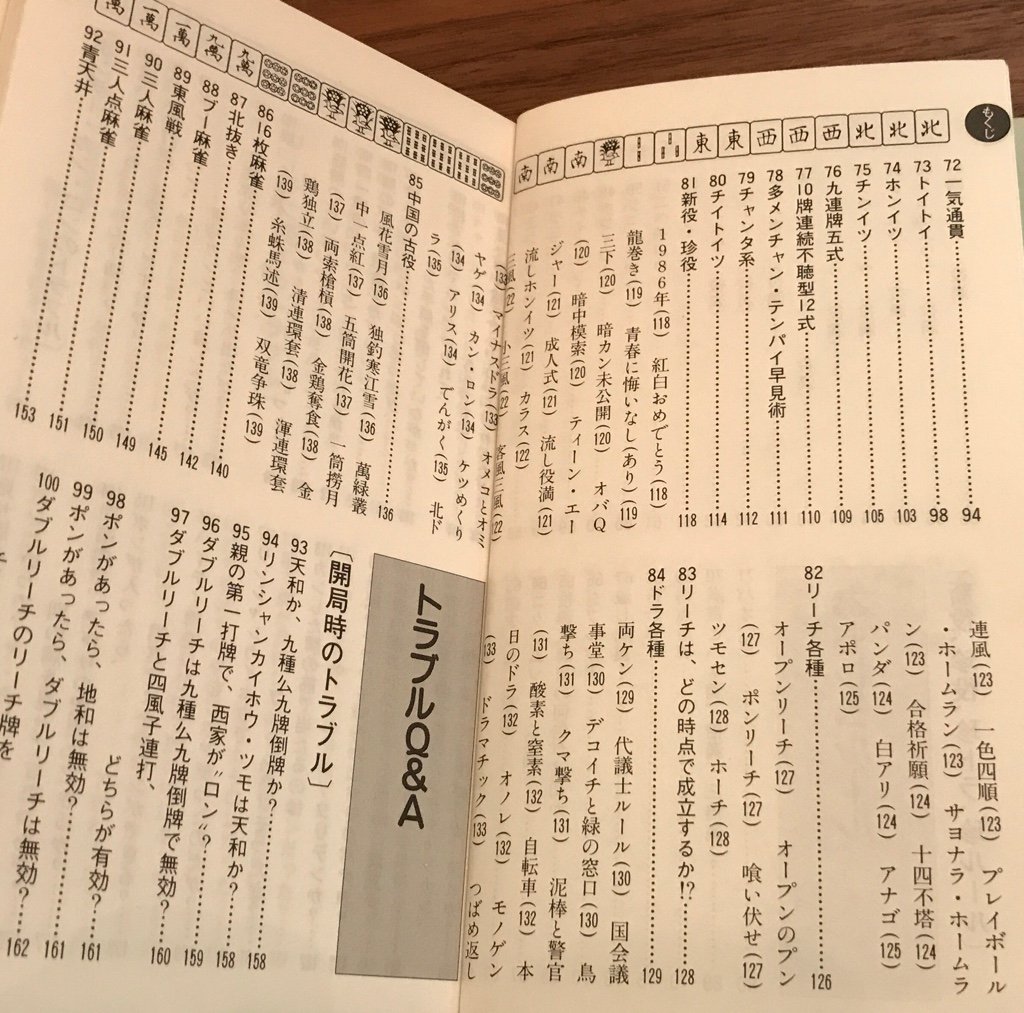 もくじ
北 北 北 西 西 西 東 東 南 南 南
72 一気通貫……94
73 トイトイ……98
74 ホンイツ……103
75 チンイツ……105
76 九連牌五式……109
77 10牌連続不聴型12式……110
78 多メンチャン・テンパイ早見術……111
79 チャンタ系……112
80 チイトイツ……114
81 新役・珍役……118
1986年(118) 紅白おめでとう(118)
龍巻き(119) 青春に悔いなし(あり)(119)
三下(120) 暗カン未公開(120) オバQ
(120) 暗中模索(120) ティーン・エー
ジャー(121) 成人式(121) 流し役満(121)
流しホンイツ(121) カラス(122)
三風(122) 小三風(122) 客風三風(122)
連風(123) 一色四順(123) プレイボール
・ホームラン(123) サヨナラ・ホームラ
ン(123) 合格祈願(124) 十四不塔(124)
パンダ(124) 白アリ(124) アナゴ(125)
アポロ(125)
82 リーチ各種……126
オープンリーチ(127) オープンのプン
(127) ポンリーチ(127) 喰い伏せ(127)
ツモセン(128) ホーチ(128)
83 リーチは、どの時点で成立するか!?……128
84 ドラ各種……129
両ケン(129) 代議士ルール(130) 国会議
事堂(130) デコイチと緑の窓口(130) 鳥
撃ち(131) クマ撃ち(131) 泥棒と警官
(131) 酸素と窒素(132) 自転車(132) 本
日のドラ(132) オノレ(132) モノゲン
(133) ドラマチック(133) つばめ返し
萬 一萬 一萬 九萬 九萬
(133) マイナスドラ(133) オメコとオミ
ヤゲ(134) カン・ロン(134) ケツめくり
(134) アリス(134) でんがく(135) 北ド
ラ(135)
85 中国の古役……136
風花雪月(136) 独釣寒江雪(136) 萬緑叢
中一点紅(137) 五筒開花(137) 一筒撈月
(137) 両索槍槓(138) 金鶏奪食(138) 金
鶏独立(138) 清連環套(138) 渾連環套
(139) 糸蛛馬述(139) 双竜争珠(139)
86 16枚麻雀……140
87 北抜き……142
88 ブー麻雀……145
89 東風戦……149
90 三人麻雀……150
91 三人点麻雀……151
92 青天井……153
トラブルQ&A
〔開局時のトラブル〕
93 天和か、九種么九牌倒牌か?……158
94 リンシャンカイホウ・ツモは天和か?……158
95 親の第一打牌で、西家が“ロン”?……159
96 ダブルリーチは九種么九牌倒牌で無効?……160
97 ダブルリーチと四風子連打、
どちらが有効?……161
98 ポンがあったら、地和は無効?……161
99 ポンがあったら、ダブルリーチは無効?……162
100 ダブルリーチのリーチ牌を